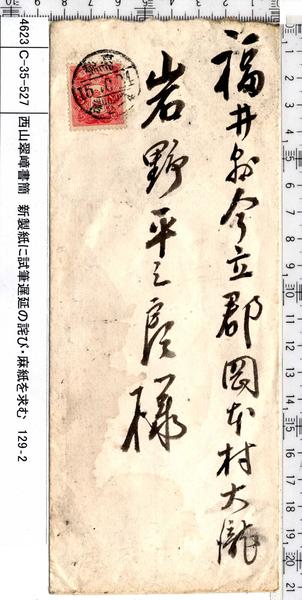 福井縣今立郡岡本村大瀧
岩野平三郎様
4623 C-35-527 西山翠嶂書簡 新製紙に試筆遅延の詫び・麻紙を求む 129-2